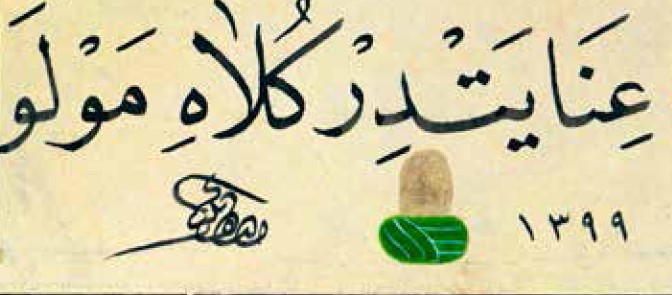 عِنَايَتْدِرْ كُلَاهِ مَوْلَو
١٣٩٩